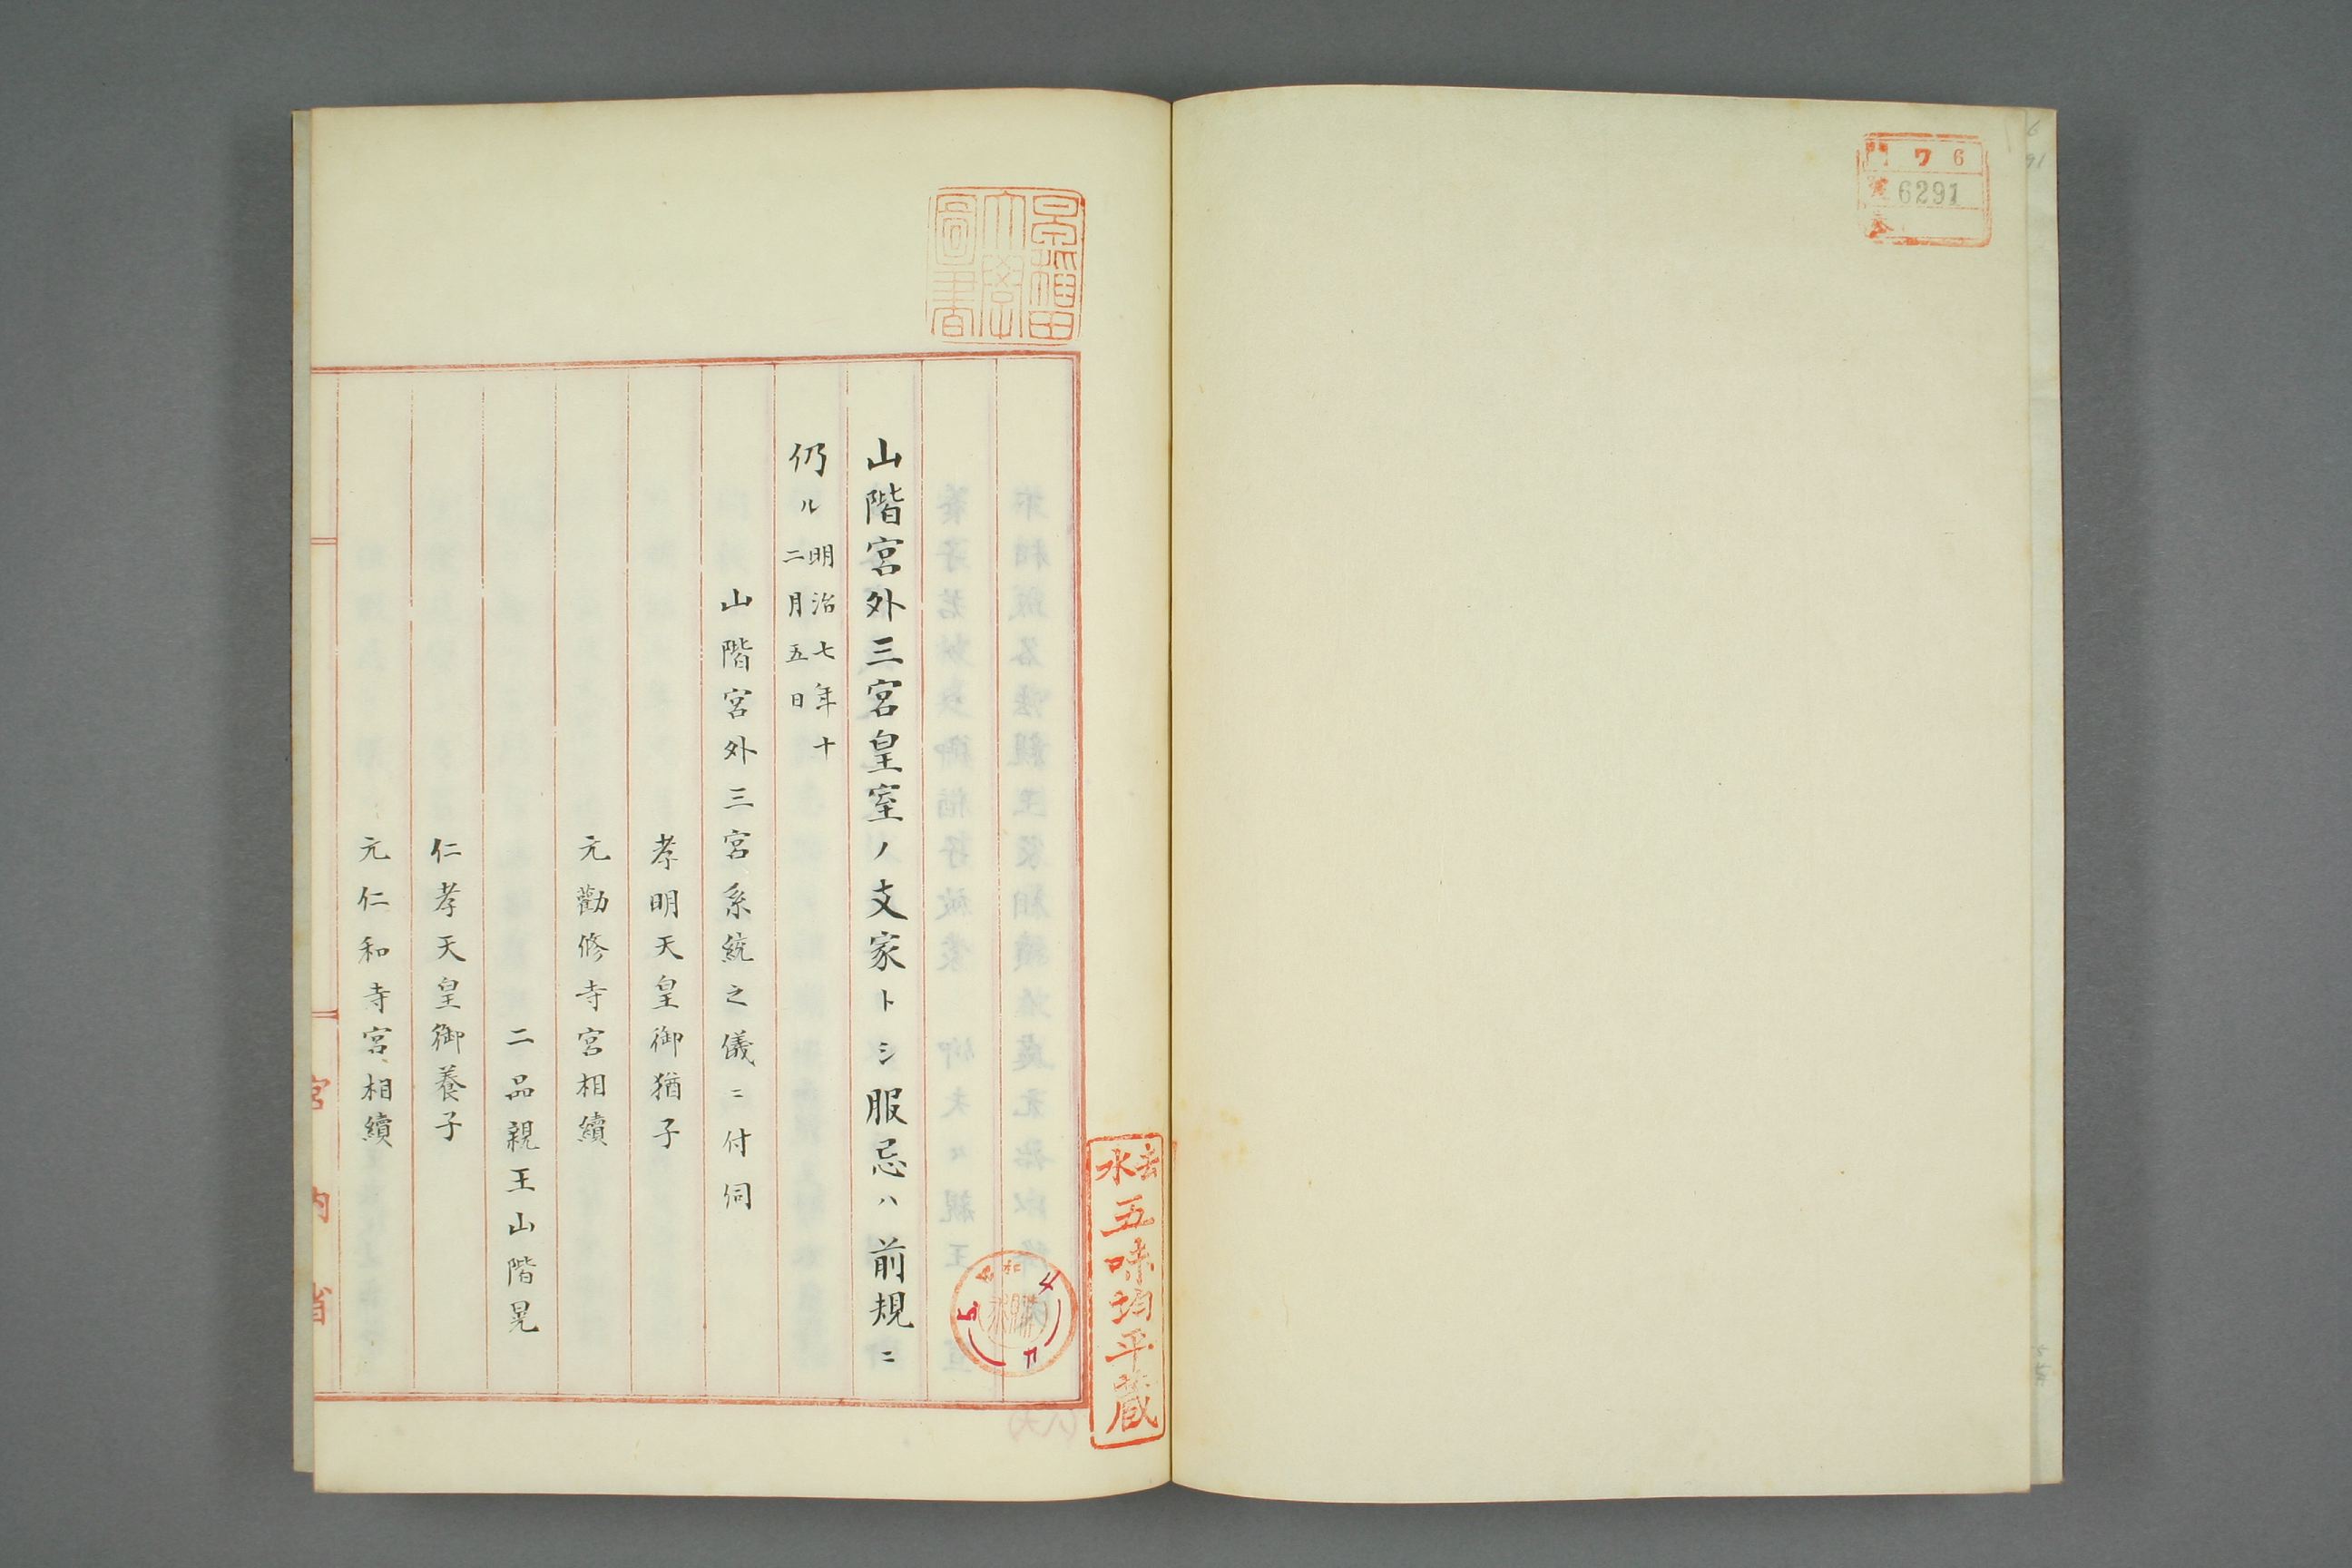 門 ワ 6
號 6291
卷
早稲田
大學
圖書
山階宮外三宮皇室ノ支家トシ服忌ハ前規ニ
仍ル明治七年十
二月五日
山階宮外三宮系統之儀ニ付伺
孝明天皇御猶子
元勸修寺宮相續
二品親王山階晃
仁孝天皇御養子
元仁和寺宮相續
宮内省
五味均平蔵